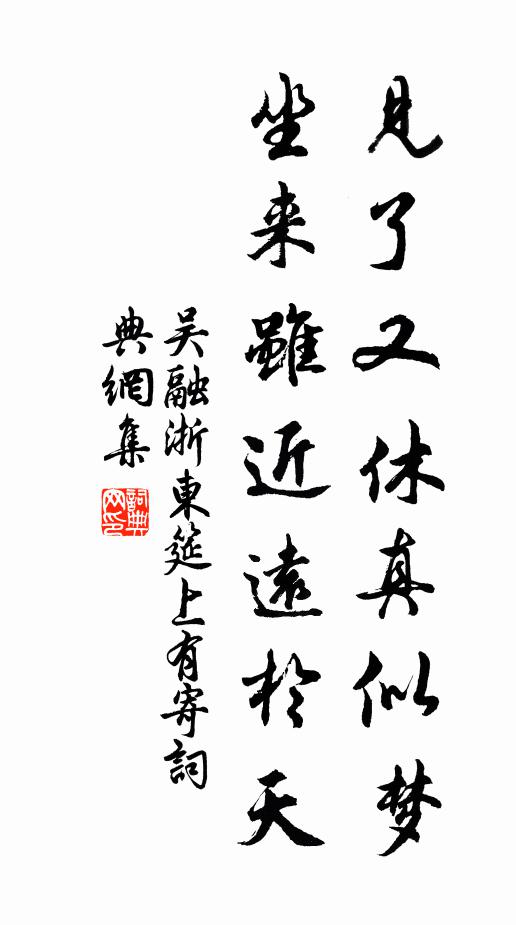 見了又休真似梦
坐来雖近遠於天
吴融浙東筵上有寄詞
典網集
詞典
网印